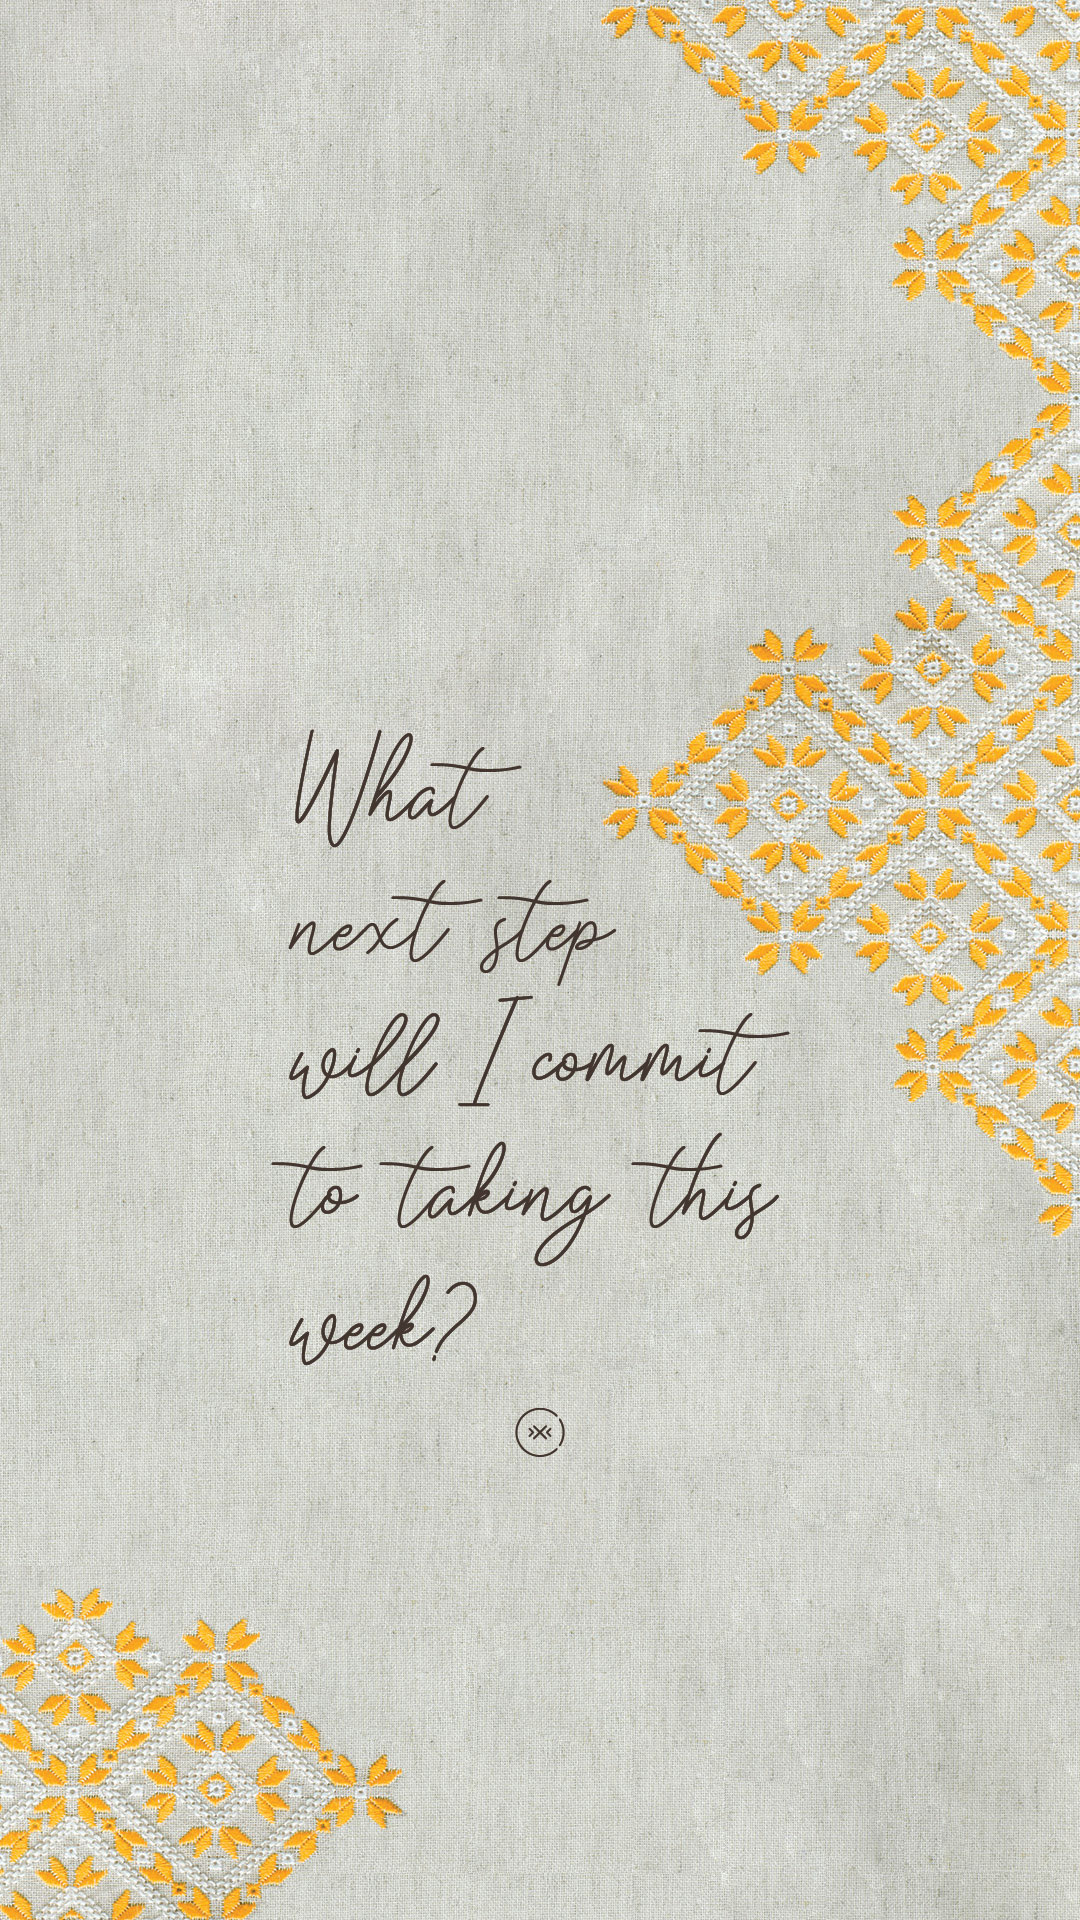 What
next step
will I commit
to taking this
week?